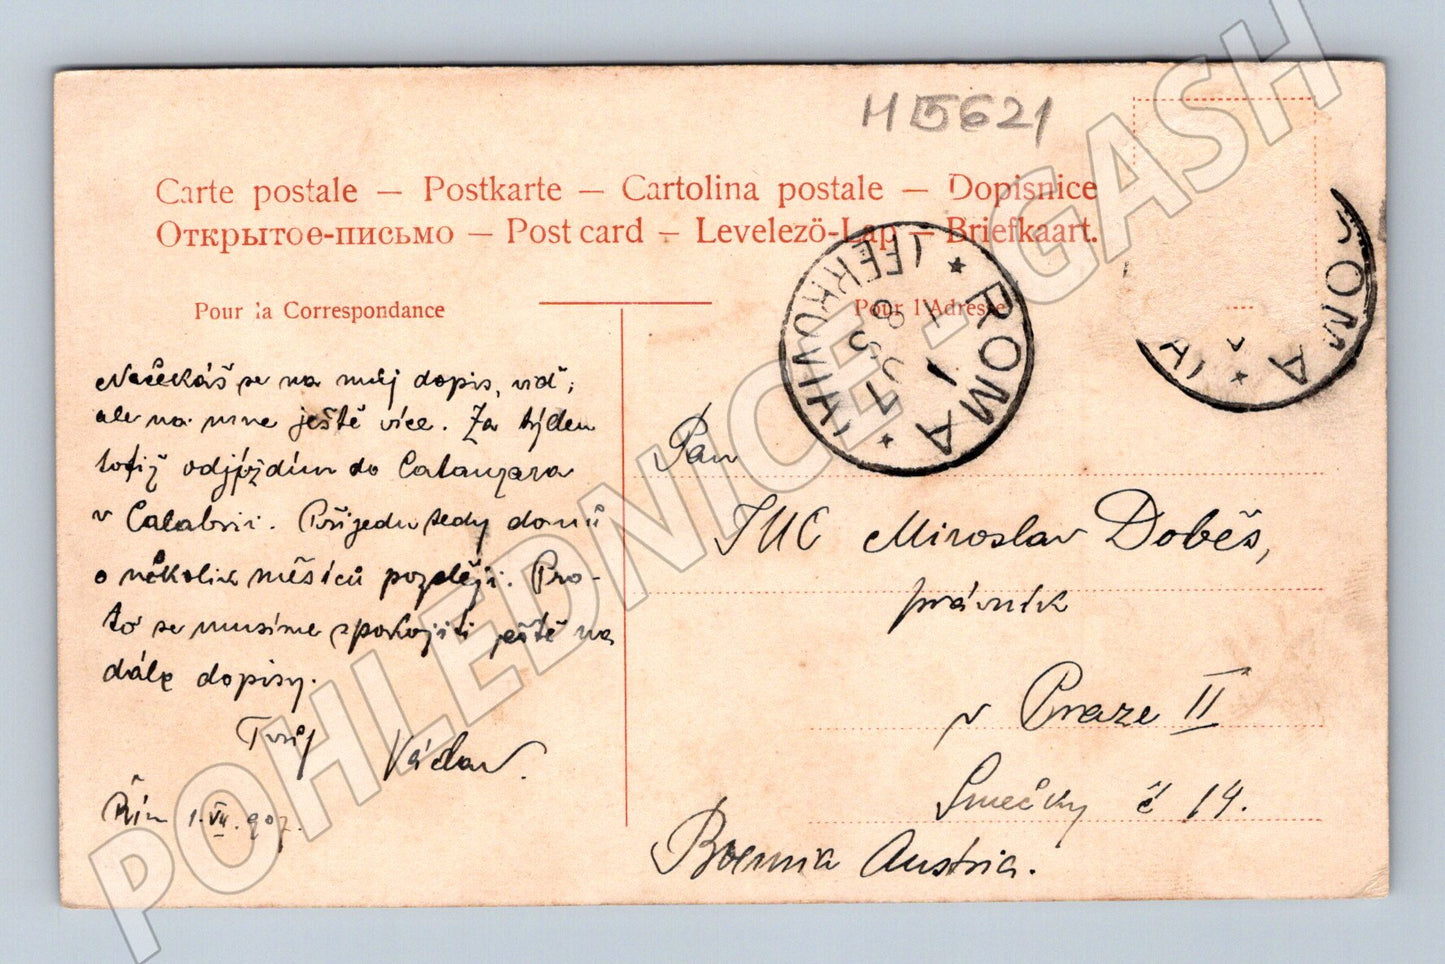 H 5621
Carte postale — Postkarte — Cartolina postale — Dopisnice
Открытое-письмо — Post card — Levelezö-Lap — Briefkaart.
Pour la Correspondance
Pour l'Adresse
Nečekáš se na můj dopis, viď,
ale na mne ještě více. Za týden
totiž odjíždím do Catanzara
v Calabrii. Přijedu tedy domů
o několik měsíců později. Pro-
to se musíme spokojiti ještě na
dále dopisy.
Tvůj Václav.
Řím 1. VII. 907.
ROMA
(FERROVIA)
1
ROMA
IA)
Pan
JUC Miroslav Dobeš,
právník
v Praze II
Smečky č 14.
Boemia Austria.
POHLEDNICE - GASH